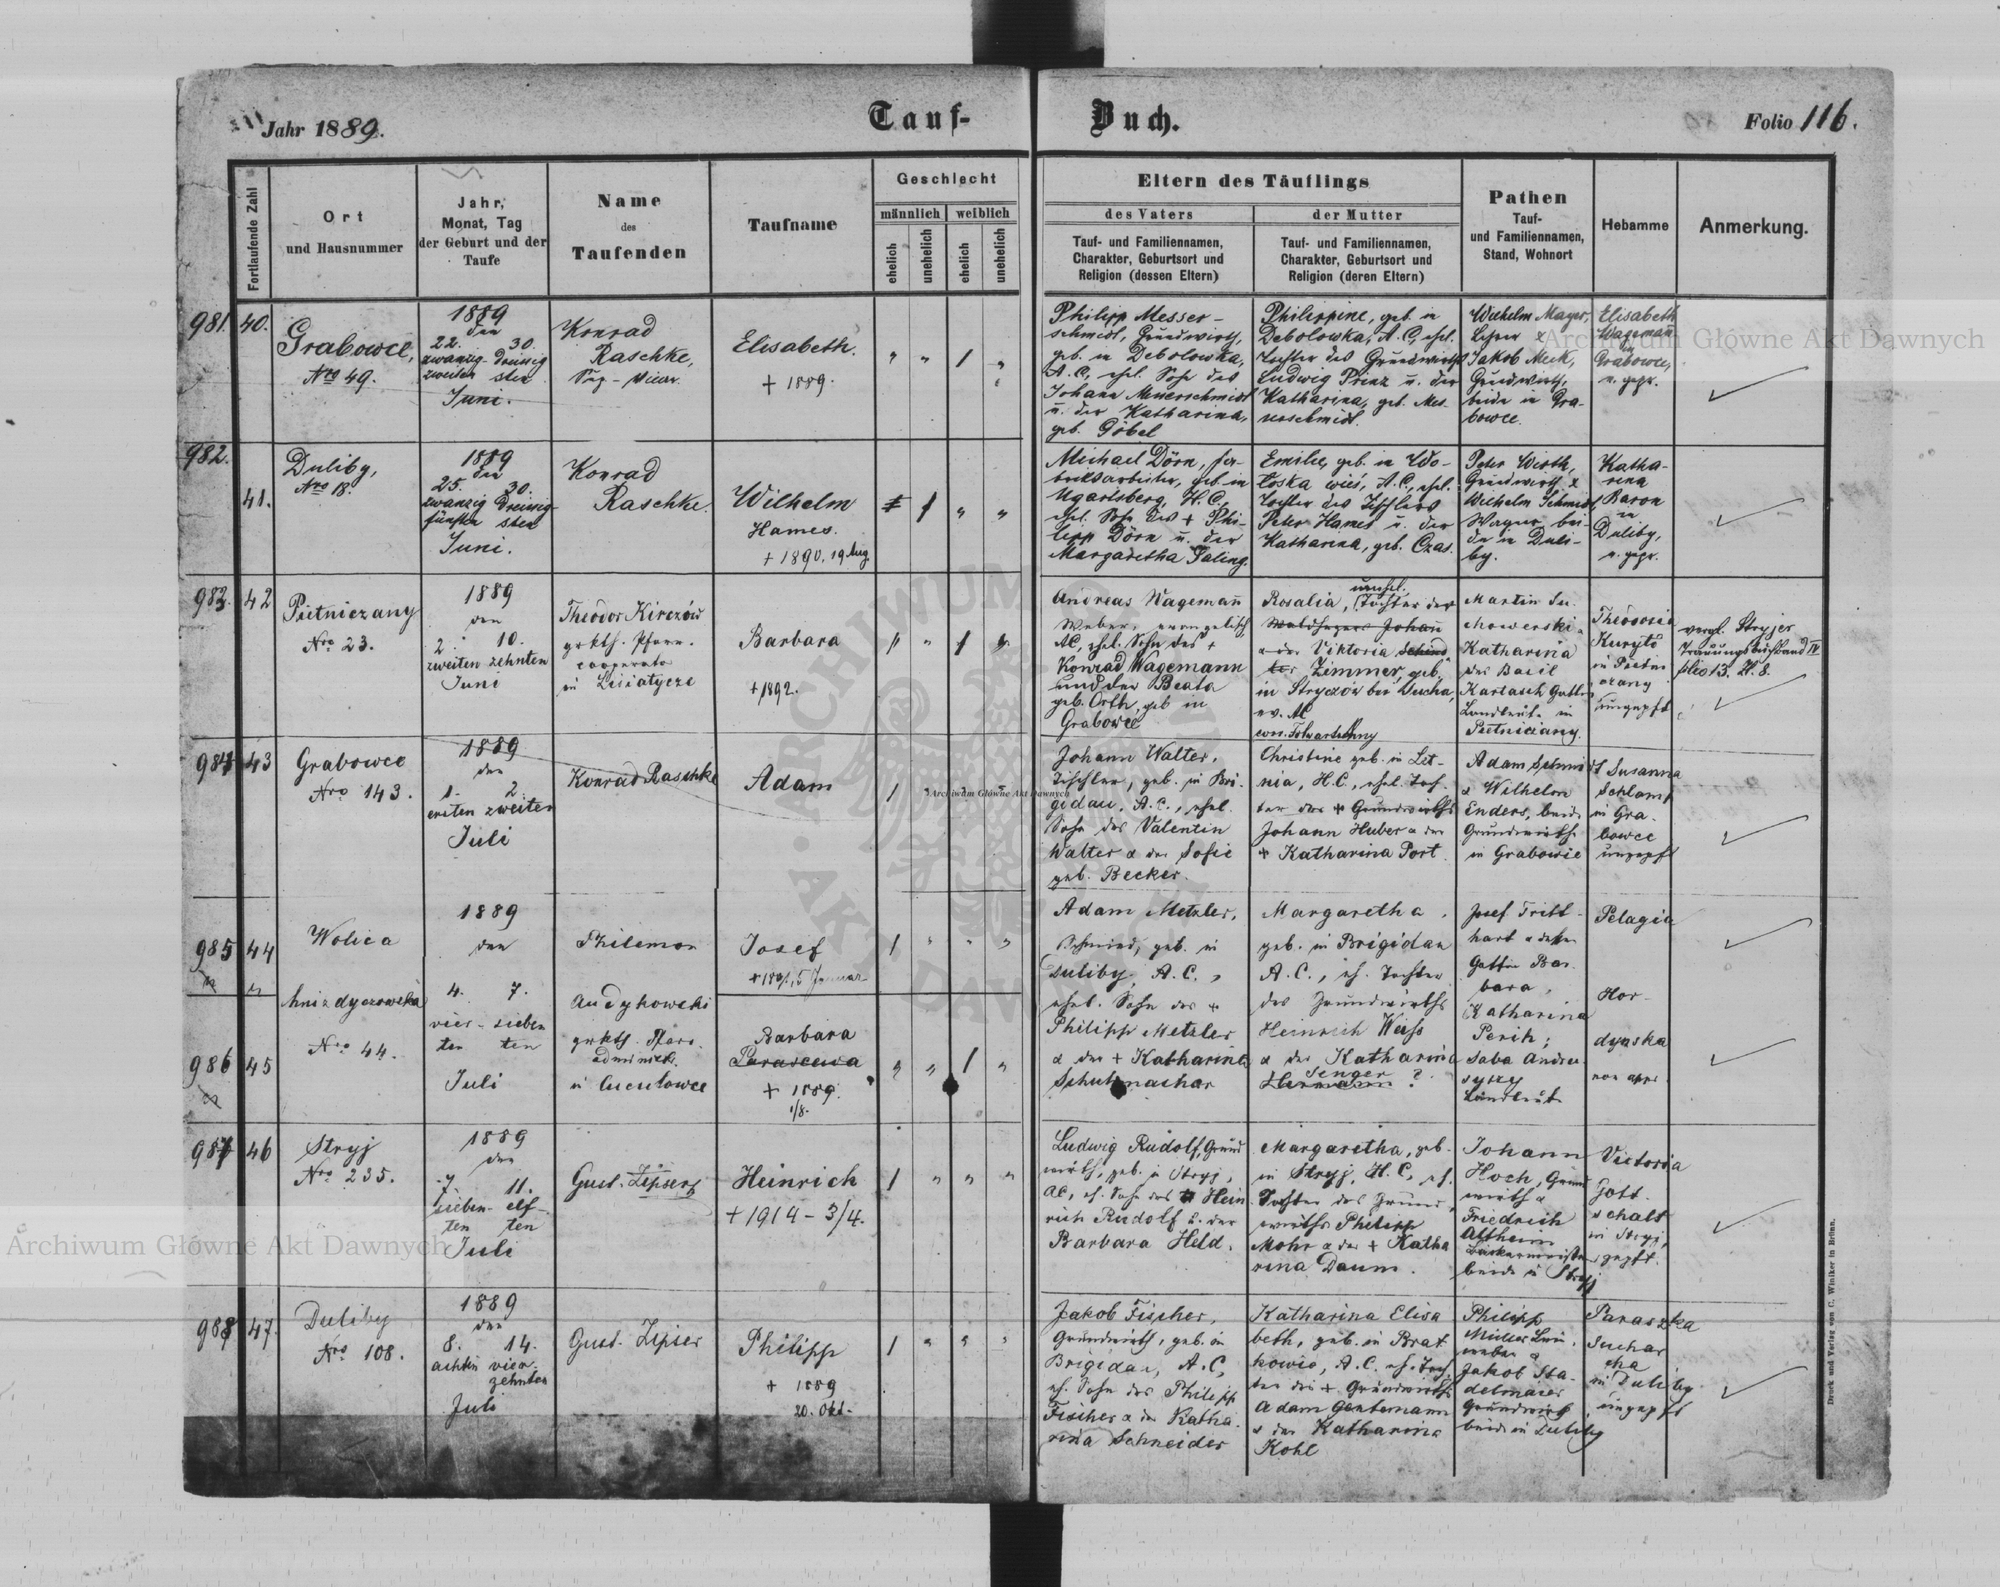 Jahr 1889.
Tauf-
Buch.
Folio 116.
Fortlaufende Zahl
Ort
und Hausnummer
Jahr,
Monat, Tag
der Geburt und der
Taufe
Name
des
Taufenden
Taufname
Geschlecht
männlich
weiblich
ehelich
unehelich
ehelich
unehelich
Eltern des Täuflings
des Vaters
der Mutter
Tauf- und Familiennamen,
Charakter, Geburtsort und
Religion (dessen Eltern)
Tauf- und Familiennamen,
Charakter, Geburtsort und
Religion (deren Eltern)
Pathen
Tauf-
und Familiennamen,
Stand, Wohnort
Hebamme
Anmerkung.
981. 40.
Grabowce,
Nro 49.
1889
den
22. 30.
zwanzig- dreissig
zweiten sten
Juni.
Konrad
Raschke,
Elisabeth.
+ 1889.
Philipp Messer-
schmidt, Grundwirth,
geb. in Debolowka,
A.C., ehel. Sohn des
Johann Messerschmidt
u. der Katharina,
geb. Göbel
Philippine, geb. in
Debolowka, A.C., ehel.
Tochter des Grundwirths
Ludwig Prinz u. der
Katharina, geb. Mes-
serschmidt.
Wilhelm Mayer,
Lehrer &
Jakob Meck,
Grundwirth,
beide in Gra-
bowce.
Elisabeth
Wagemañ
in
Grabowce,
u. gepr.
982.
41.
Duliby,
Nro 18.
1889
den
25. 30.
zwanzig dreissig-
fünften sten
Juni.
Konrad
Raschke.
Wilhelm
Hames.
+ 1890. 19 Aug.
Michael Dörn, Fa-
briksarbeiter, geb. in
Ugartsberg, H.C.,
ehel. Sohn des + Phi-
lipp Dörn u. der
Margaretha Saling.
Emilie, geb. in Wo-
loska wies, A.C., ehel.
Tochter des Tischlers
Peter Hames u. der
Katharina, geb. Czas.
Peter Wirth,
Grundwirth &
Wilhelm Schmidt,
Wagner, bei-
de in Duli-
by.
Katha-
rina
Baron
in
Duliby,
u. gepr.
983. 42
Pietniczany
Nro 23.
1889
den
2. 10.
zweiten zehnten
Juni
Theodor Kirczów
grkth. Pfarr-
cooperator
in Lisiatycze
Barbara
+ 1892.
Andreas Wagemañ
Weber, evangelisch
AC, ehel. Sohn des +
Konrad Wagemann
und der Beata
geb. Orth, geb in
Grabowce
Rosalia, unehel. Tochter der
Johañ
Viktoria
Zimmer, geb.
in Stryczów bei
ev. AC
Martin Su-
chowerski
Katharina
des Basil
Kartasch Gattin
Landleute in
Pietniczany.
Theodosia
Kuryto
in Pietni
czany
ungeprft
vergl. Stryjer
Trauungsbuch Band IV
folio 13. Zl. 8.
984 43
Grabowce
Nro 143.
1889
den
1. 2.
ersten zweiten
Juli
Konrad Raschke
Adam
Johann Walter,
Tischler, geb. in Bri-
gidau, A.C., ehel.
Sohn des Valentin
Walter & der Sofie
geb. Becker.
Christine geb. in Let-
nia, H.C., ehel. Toch-
ter des + Grundwirths
Johann Huber & der
+ Katharina Port.
Adam Schmidt
& Wilhelm
Enders, beide
Grundwirthe
in Grabowce
Susanna
Schlamp
in Gra-
bowce
ungeprft
985 44
986 45
Wolica
hnizdyczowska
Nro 44.
1889
den
4. 7.
vier- sieben
ten ten
Juli
Philemon
Andykowski
grkth. Pfarr-
administr.
in Cuculowce
Josef
+ 1891, 5 Januar
Barbara
Parascewa
+ 1889.
1/8.
Adam Metzler,
Schmied, geb. in
Duliby, A.C.,
ehel. Sohn des +
Philipp Metzler
& der + Katharina
Schuhmacher
Margaretha,
geb. in Brigidau
A.C., eh. Tochter
des Grundwirths
Heinrich Weiss
& der Katharina
Senger
Hermann ?
Josef Tritt-
hart & dessen
Gattin Bar-
bara,
Katharina
Perih;
Saba Andru-
syszy
Landleute
Pelagia
Hor-
dynska
non appr.
987 46
Stryj
Nro 235.
1889
den
7. 11.
sieben- elf-
ten ten
Juli
Gust. Zipser
Heinrich
+ 1914 - 3/4.
Ludwig Rudolf, Grund
wirth, geb. in Stryj,
AC, eh. Sohn des Hein
rich Rudolf u. der
Barbara Held.
Margaretha, geb.
in Stryj, H.C., eh.
Tochter des Grund-
wirths Philipp
Mohr & der + Katha
rina Daum.
Johann
Hoch, Grund
wirth &
Friedrich
Altheim
Bäckermeister
beide in Stryj
Victoria
Gott-
schalk
in Stryj,
geprft.
988 47.
Duliby
Nro 108.
1889
den
8. 14.
achten vier-
zehnten
Juli
Gust. Zipser
Philipp
+ 1889
20. Okt.
Jakob Fischer,
Grundwirth, geb. in
Brigidau, A.C.,
eh. Sohn des Philipp
Fischer & der Katha-
rina Schneider
Katharina Elisa
beth, geb. in Brat
kowic, A.C., eh. Toch
ter des + Grundwirths
Adam Gentemann
& der Katharina
Kohl
Philipp
Müller Lein-
weber &
Jakob Sta-
delmaier
Grundwirth
beide in Duliby
Paraszka
Suchar
cha
in Duliby
ungeprft
Druck und Verlag von C. Winiker in Brünn.
Archiwum Główne Akt Dawnych
Archiwum Główne Akt Dawnych
Archiwum Główne Akt Dawnych